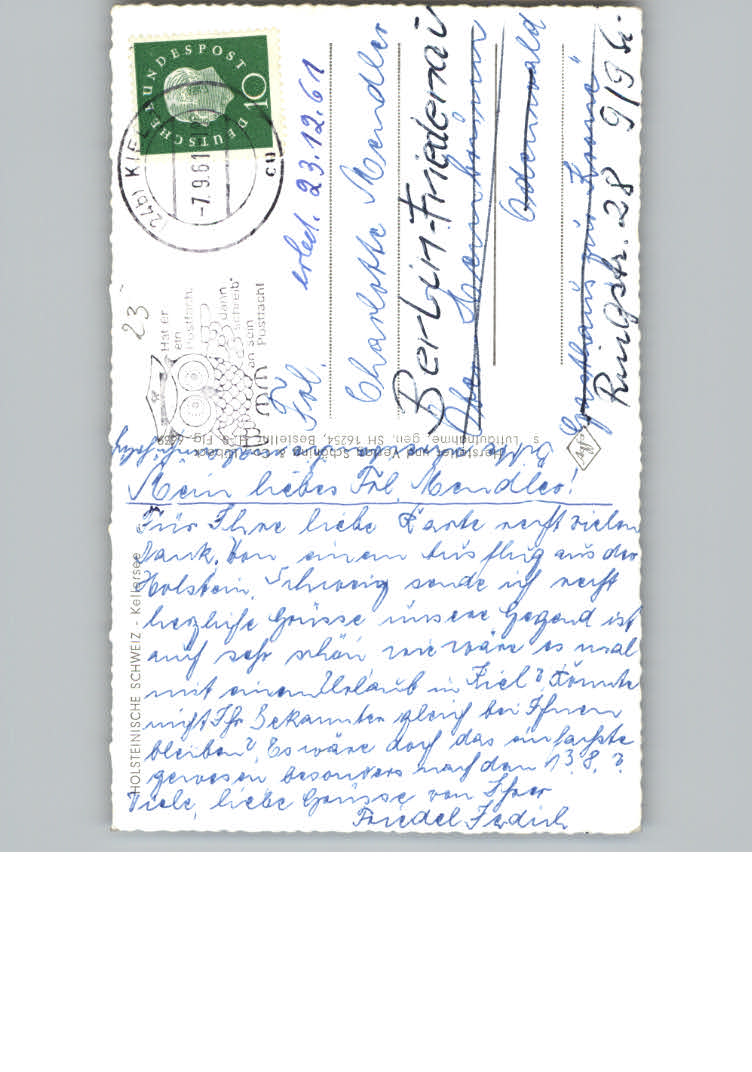 DEUTSCHE BUNDESPOST
10
(24b) KIEL
-7.9.61
cu
23
Hat er
ein
Postfach,
dann
schreib'
an sein
Postfach
erled. 23.12.61
Frl.
Charlotte Mendler
Berlin-Friedenau
Odenwald
Gasthaus zur Krone
Ringstr. 28
Hersteller und Verlag Schöning & Co., Lübeck
Luftaufnahme, gen. SH 16254, Bestellnr.
Agfa
HOLSTEINISCHE SCHWEIZ - Kellersee
Mein liebes Frl. Mendler!
Für Ihre liebe Karte recht vielen
Dank. Von einem Ausflug aus der
Holstein. Schweiz sende ich recht
herzliche Grüsse unsere Gegend ist
auch sehr schön wie wäre es mal
mit einem Urlaub in Kiel? Könnte
nicht Ihr Bekannter gleich bei Ihnen
bleiben? Es wäre doch das einfachste
gewesen besonders nach dem 13.8.?
Viele, liebe Grüsse von Ihrer
Friedel